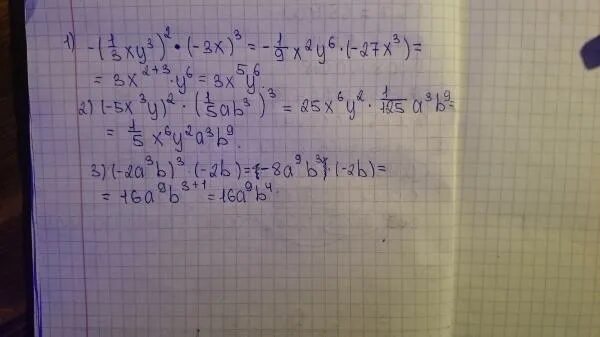 1) -(1/3 xy³)² • (-3x)³ = -1/9 x²y⁶ · (-27x³) =
= 3x²⁺³ · y⁶ = 3x⁵y⁶.
2) (-5x³y)² · (1/5 ab³)³ = 25x⁶y² · 1/125 a³b⁹ =
= 1/5 x⁶y²a³b⁹.
3) (-2a³b)³ · (-2b) = -8a⁹b³ · (-2b) =
= 16a⁹b³⁺¹ = 16a⁹b⁴.